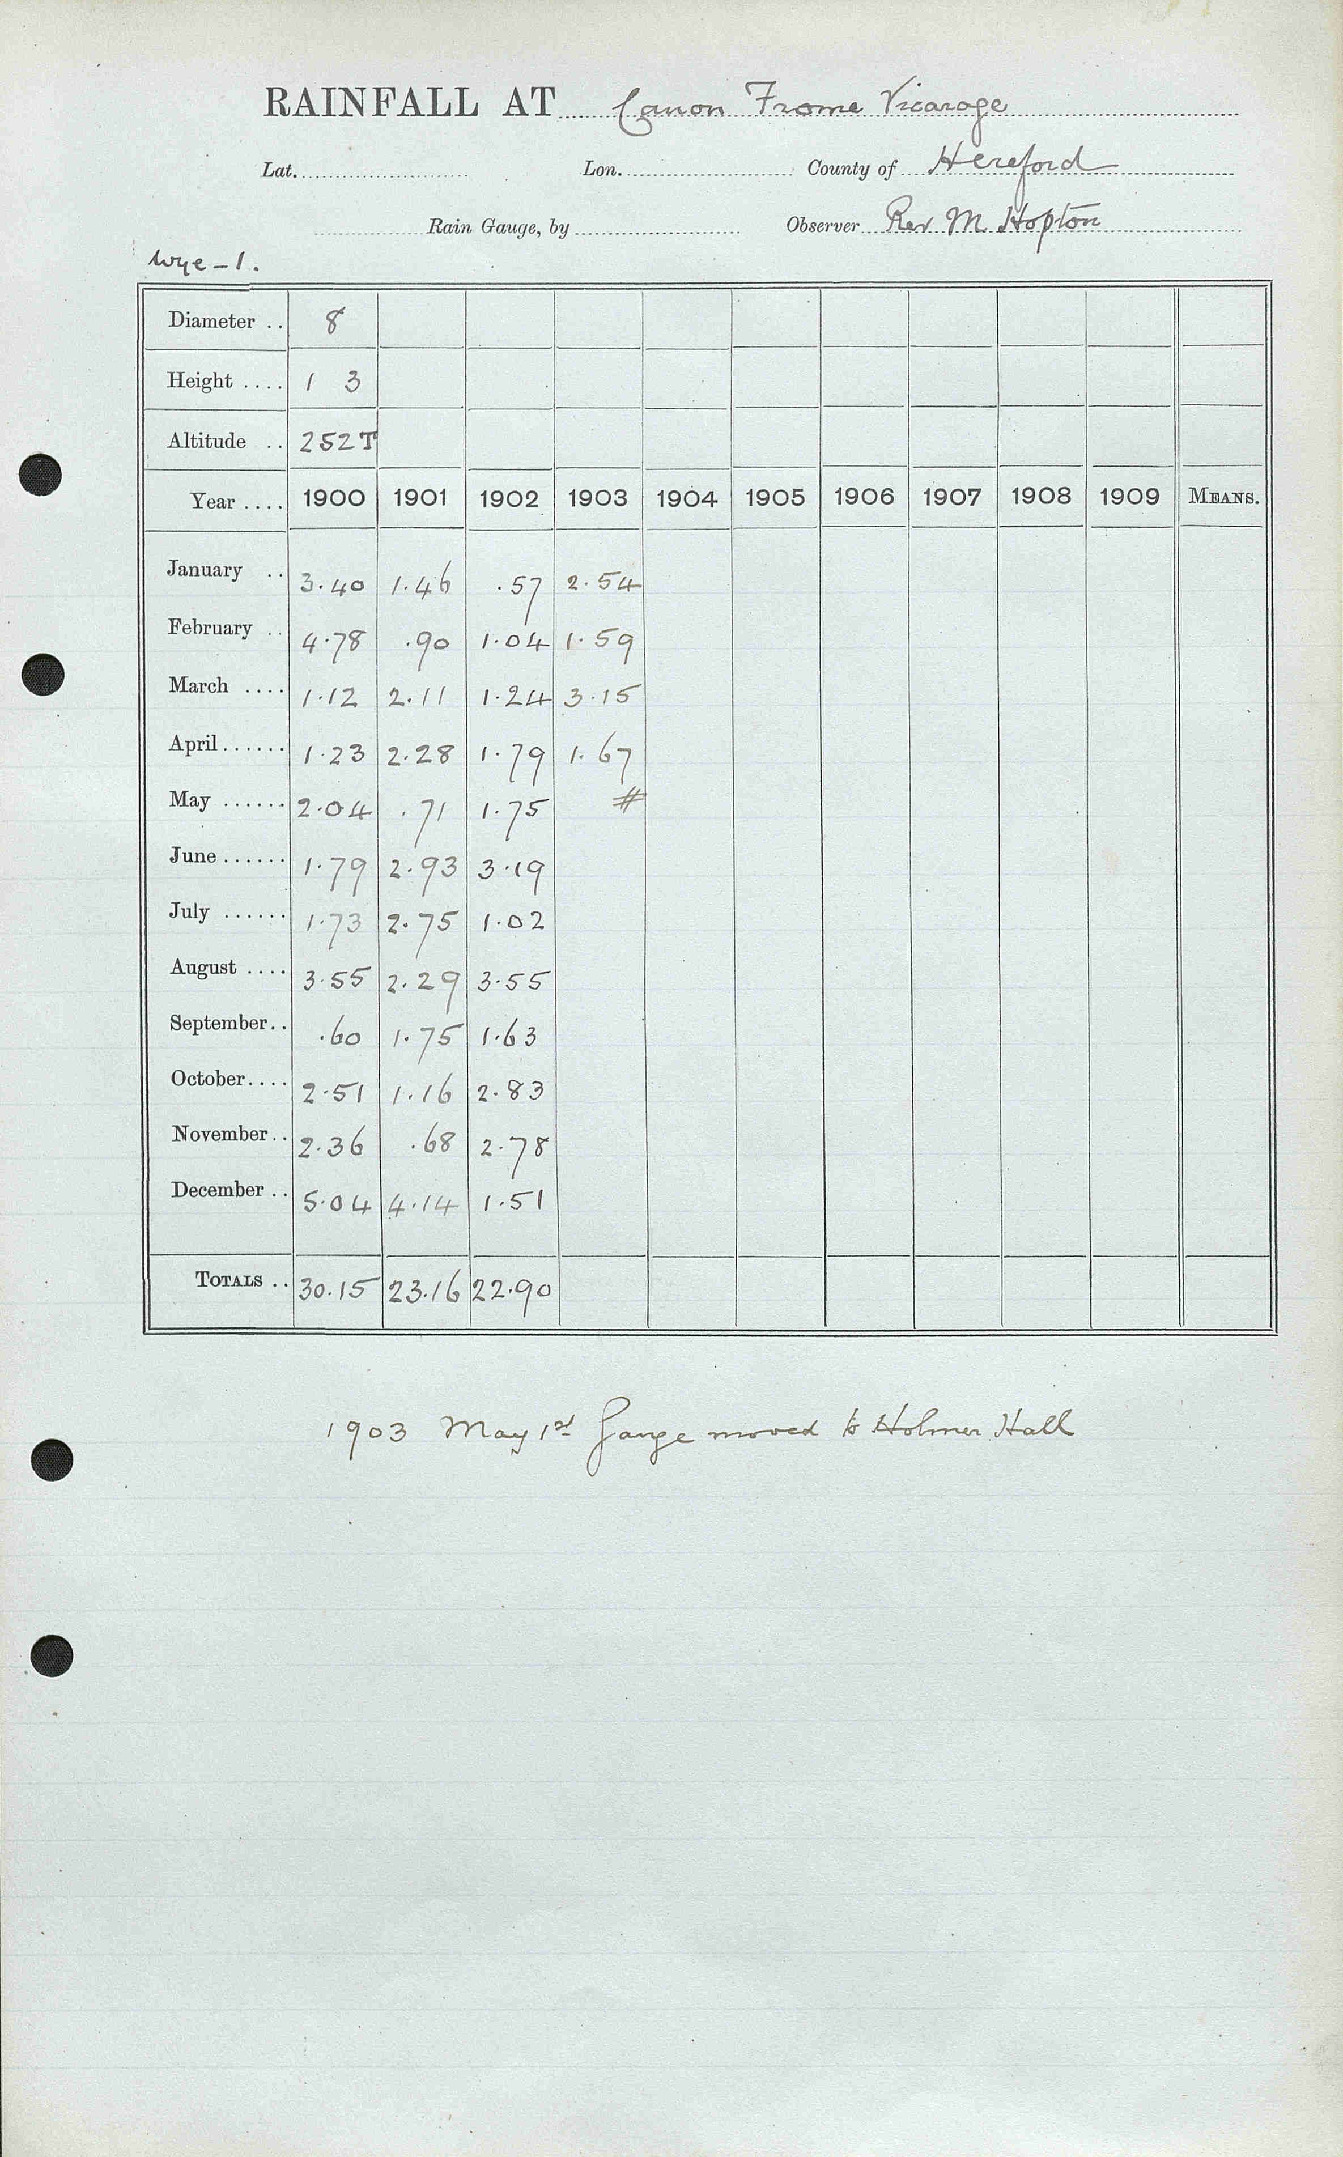 RAINFALL AT Canon Frome Vicarage
Lat. Lon. County of Hereford
Rain Gauge, by Observer Rev M. Hopton
Wye - 1.
Diameter .. 8
Height .... 1 3
Altitude .. 252T
Year .... 1900 1901 1902 1903 1904 1905 1906 1907 1908 1909 MEANS.
January .. 3.40 1.46 .57 2.54
February .. 4.78 .90 1.04 1.59
March .... 1.12 2.11 1.24 3.15
April ...... 1.23 2.28 1.79 1.67
May ...... 2.04 .71 1.75 #
June ...... 1.79 2.93 3.19
July ...... 1.73 2.75 1.02
August .... 3.55 2.29 3.55
September.. .60 1.75 1.63
October.... 2.51 1.16 2.83
November.. 2.36 .68 2.78
December .. 5.04 4.14 1.51
TOTALS .. 30.15 23.16 22.90
1903 May 1st Gauge moved to Holmer Hall